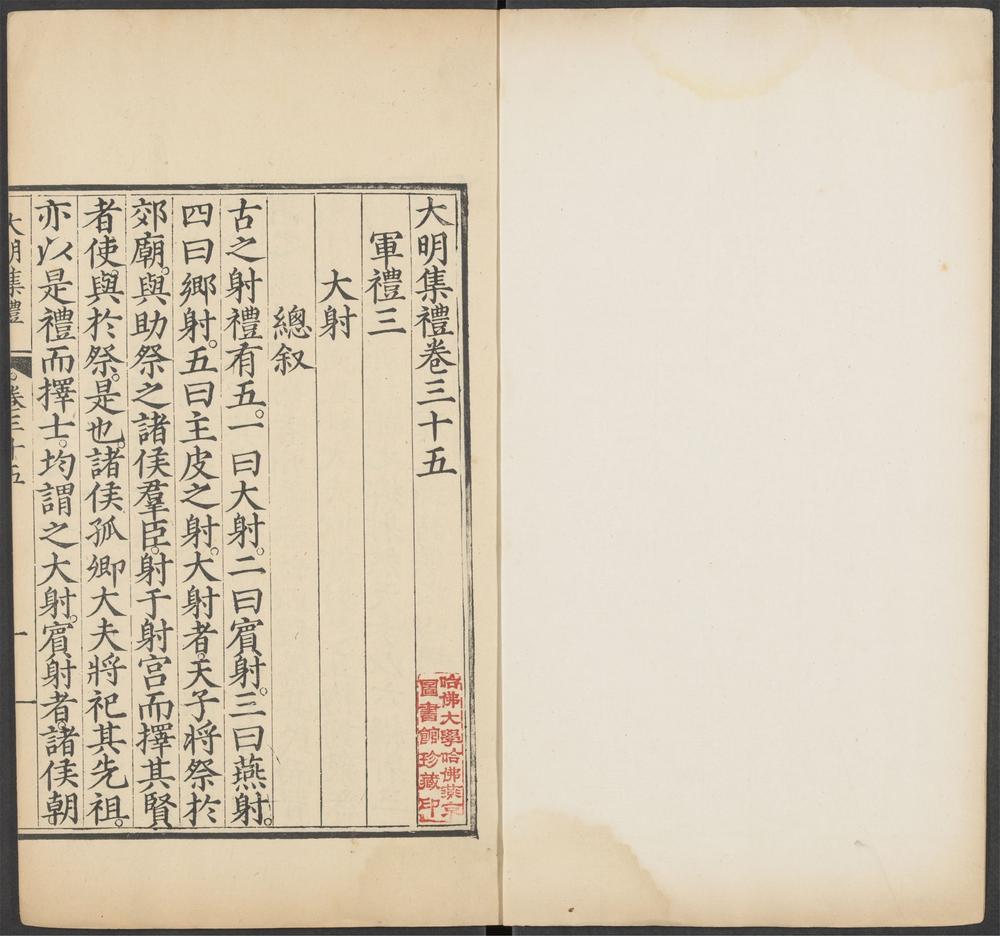 大明集禮卷三十五
軍禮三
大射
總叙
古之射禮有五。一曰大射。二曰賔射。三曰燕射。
四曰鄉射。五曰主皮之射。大射者。天子將祭於
郊廟。與助祭之諸侯羣臣。射于射宮而擇其賢
者使。與於祭。是也。諸侯孤卿大夫將祀其先祖。
亦以是禮而擇士。均謂之大射。賔射者。諸侯朝
大明集禮 卷三十五 一
哈佛大學哈佛燕京
圖書館珍藏印